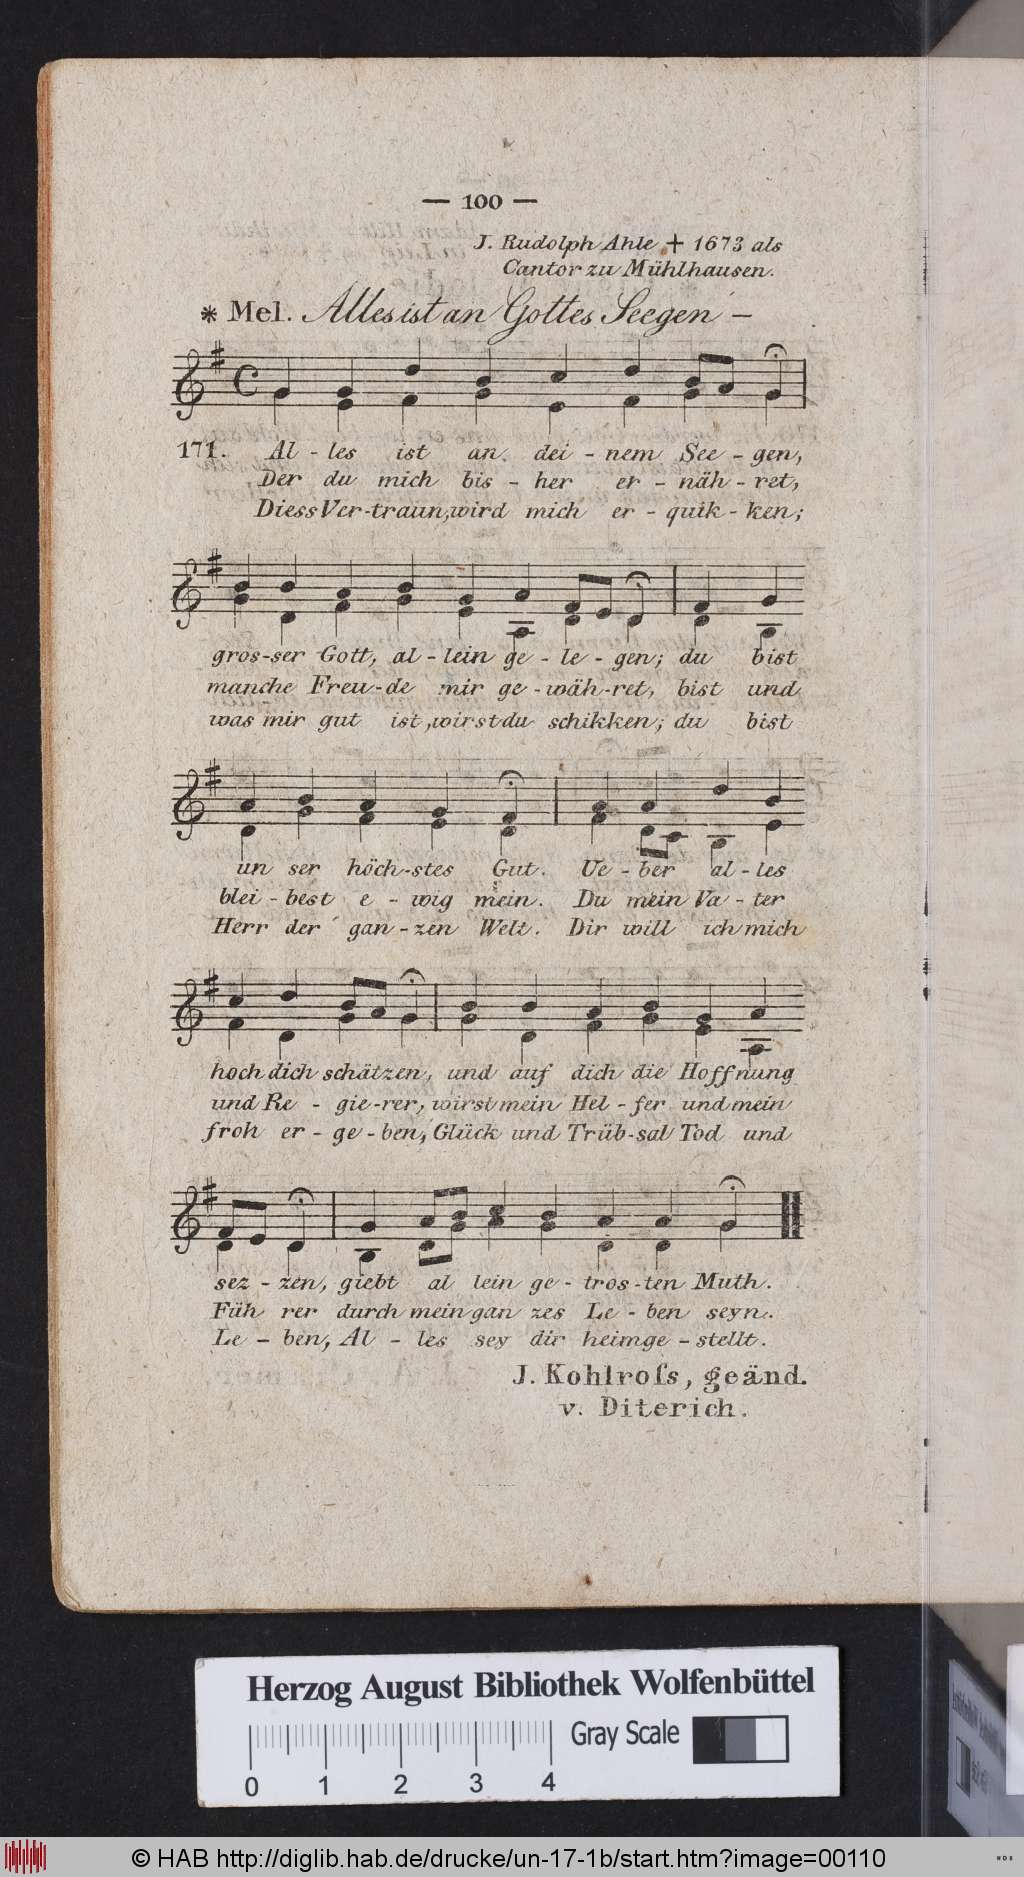 — 100 —
J. Rudolph Ahle ✝ 1673 als
Cantor zu Mühlhausen.
* Mel. Alles ist an Gottes Seegen —
171. Al - les ist an dei - nem See - gen,
Der du mich bis - her er - näh - ret,
Diess Ver - traun, wird mich er - quik - ken;
gros - ser Gott, al - lein ge - le - gen; du bist
manche Freu - de mir ge - wäh - ret, bist und
was mir gut ist, wirst du schikken; du bist
un ser höch - stes Gut. Ue - ber al - les
blei - best e - wig mein. Du mein Va - ter
Herr der gan - zen Welt. Dir will ich mich
hoch dich schätzen, und auf dich die Hoffnung
und Re - gie - rer, wirst mein Hel - fer und mein
froh er - ge - ben, Glück und Trüb - sal Tod und
sez - zen, giebt al lein ge - tros - ten Muth.
Füh rer durch mein gan zes Le - ben seyn.
Le - ben, Al - les sey dir heimge - stellt.
J. Kohlroſs, geänd.
v. Diterich.
Herzog August Bibliothek Wolfenbüttel
Gray Scale
0 1 2 3 4
© HAB http://diglib.hab.de/drucke/un-17-1b/start.htm?image=00110